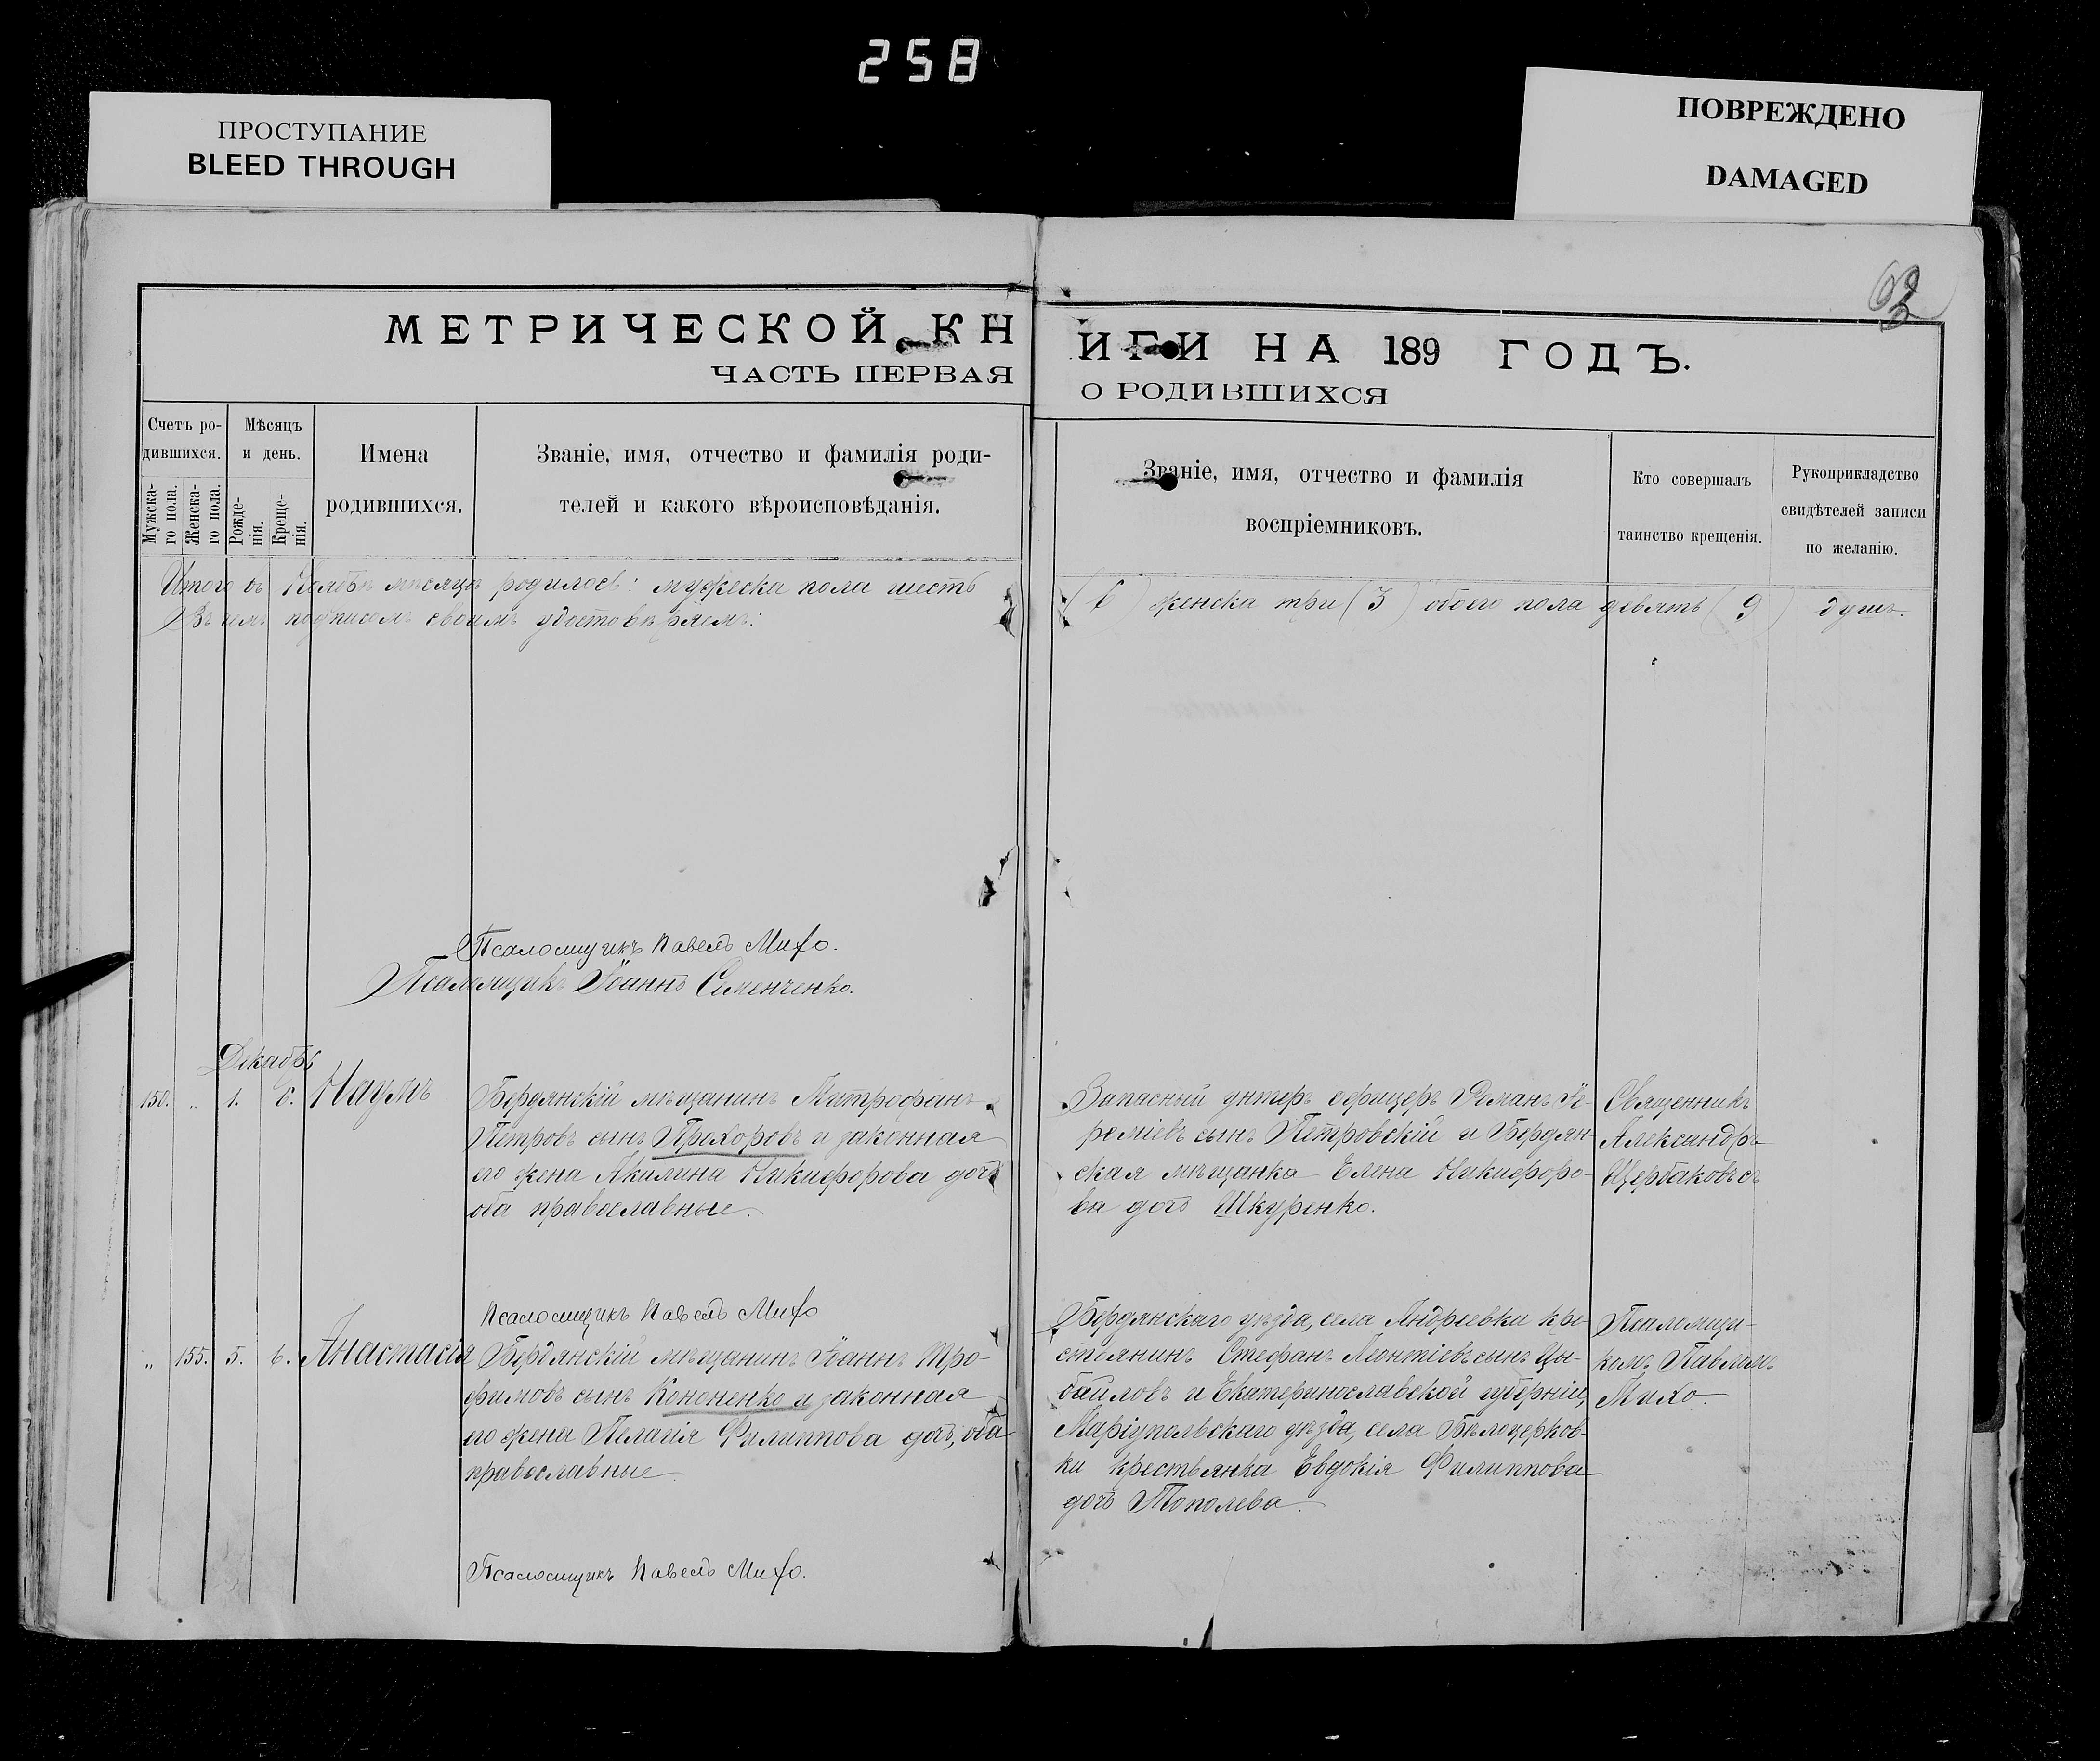 258
ПРОСТУПАНИЕ
BLEED THROUGH
ПОВРЕЖДЕНО
DAMAGED
63
МЕТРИЧЕСКОЙ КН
ЧАСТЬ ПЕРВАЯ
ИГИ НА 189 ГОДЪ.
О РОДИВШИХСЯ
Счетъ ро-
дившихся.
Мужска-
го пола.
Женска-
го пола.
Мѣсяцъ
и день.
Рожде-
нія.
Креще-
нія.
Имена
родившихся.
Званіе, имя, отчество и фамилія роди-
телей и какого вѣроисповѣданія.
Званіе, имя, отчество и фамилія
воспріемниковъ.
Кто совершалъ
таинство крещенія.
Рукоприкладство
свидѣтелей записи
по желанію.
Итого въ Ноябрѣ мѣсяцѣ родилось: мужеска пола шесть
(6) женска три (3) обоего пола девять (9) душъ.
Въ чемъ подписомъ своимъ удостовѣряемъ:
Псаломщикъ Павелъ Михо.
Псаломщикъ Іоаннъ Семенченко.
Декабрь
150. „ 1. 6. Наумъ
Бердянскій мѣщанинъ Митрофанъ
Петровъ сынъ Прохоровъ и законная
его жена Акилина Никифорова дочь
оба православные.
Запасный унтеръ офицеръ Романъ Іе-
реміевъ сынъ Петровскій и Бердян-
ская мѣщанка Елена Никифоро-
ва дочь Шкуренко.
Священникъ
Александръ
Щербаковъ съ
Псаломщикъ Павелъ Михо
„ 155. 5. 6. Анастасія
Бердянскій мѣщанинъ Іоаннъ Тро-
фимовъ сынъ Кононенко и законная
его жена Пелагія Филиппова дочь, оба
православные.
Бердянскаго уѣзда, села Андреевки кре-
стьянинъ Стефанъ Леонтіевъ сынъ Цы-
баловъ и Екатеринославской губерніи,
Маріупольскаго уѣзда, села Бѣлоцерков-
ки крестьянка Евдокія Филиппова
дочь Тополева.
Псаломщи-
комъ Павломъ
Михо.
Псаломщикъ Павелъ Михо.